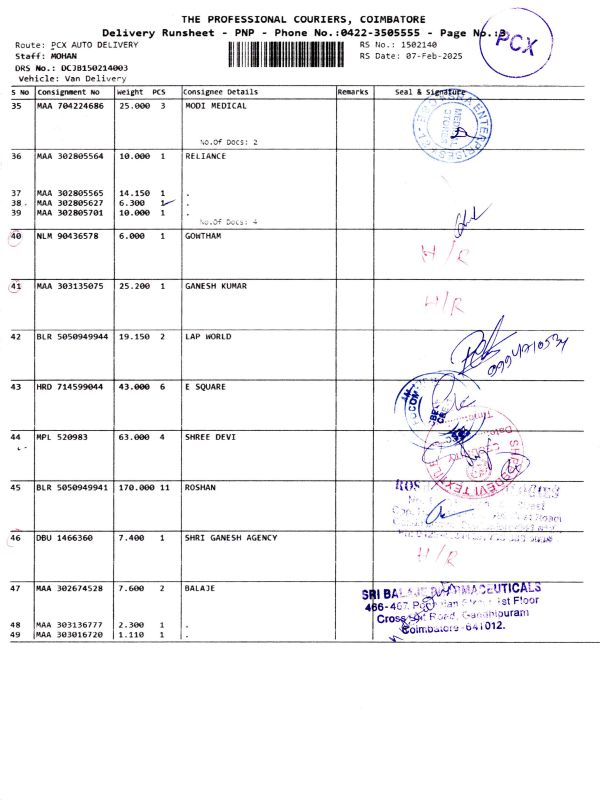 THE PROFESSIONAL COURIERS, COIMBATORE
Delivery Runsheet - PNP - Phone No.:0422-3505555 - Page No.:3
PCX
Route: PCX AUTO DELIVERY
RS No.: 1502140
Staff: MOHAN
RS Date: 07-Feb-2025
DRS No.: DCJB150214003
Vehicle: Van Delivery
S No Consignment No Weight PCS Consignee Details Remarks Seal & Signature
35 MAA 704224686 25.000 3 MODI MEDICAL
No.Of Docs: 2
MEDICAL STORES
36 MAA 302805564 10.000 1 RELIANCE
37 MAA 302805565 14.150 1 .
38 MAA 302805627 6.300 1 .
39 MAA 302805701 10.000 1 .
No.Of Docs: 4
40 NLM 90436578 6.000 1 GOWTHAM
H/R
41 MAA 303135075 25.200 1 GANESH KUMAR
H/R
42 BLR 5050949944 19.150 2 LAP WORLD
43 HRD 714599044 43.000 6 E SQUARE
44 MPL 520983 63.000 4 SHREE DEVI
45 BLR 5050949941 170.000 11 ROSHAN
46 DBU 1466360 7.400 1 SHRI GANESH AGENCY
H/R
47 MAA 302674528 7.600 2 BALAJE
SRI BALAJE PHARMACEUTICALS
466-467, 1st Floor
Cross Cut Road, Gandhipuram
Coimbatore - 641012.
48 MAA 303136777 2.300 1 .
49 MAA 303016720 1.110 1 .